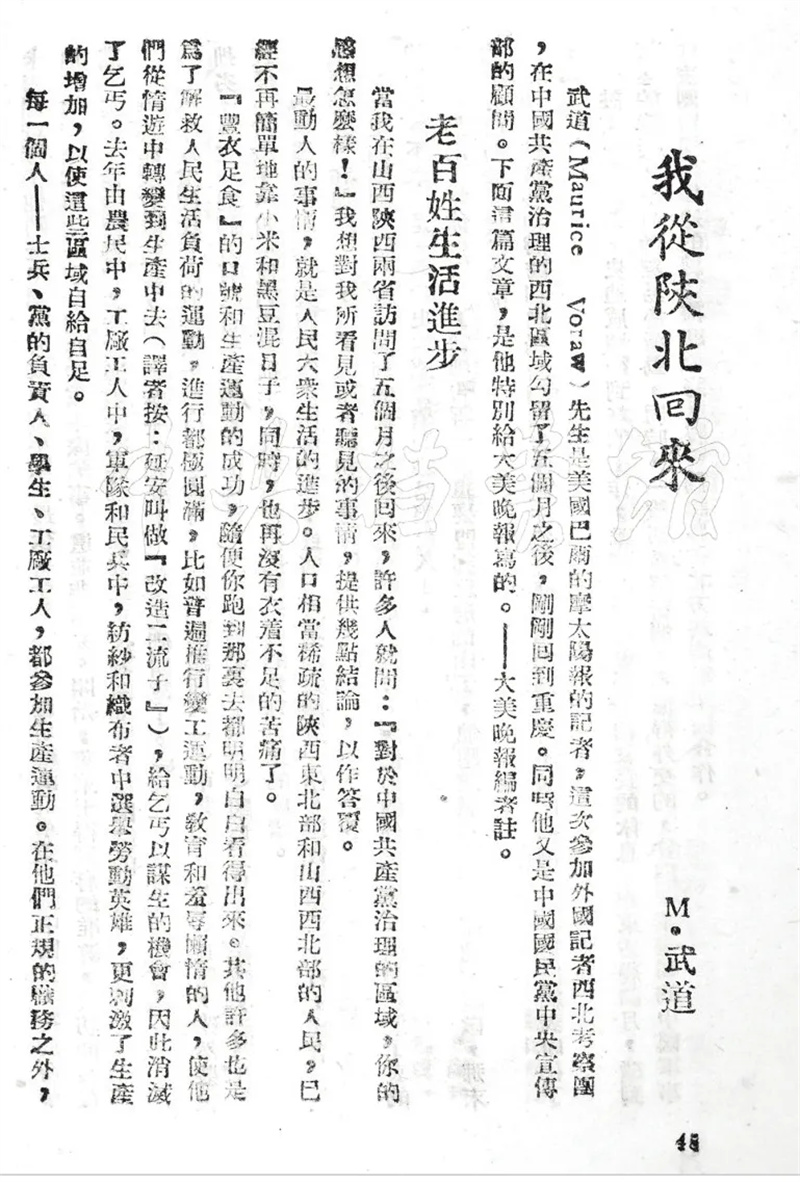 我從陝北回來
M·武道
武道(Maurice Voraw)先生是美國巴爾的摩太陽報的記者,這次參加外國記者西北考察團
,在中國共產黨治理的西北區域勾留了五個月之後,剛剛回到重慶。同時他又是中國國民黨中央宣傳
部的顧問。下面這篇文章,是他特別給大美晚報寫的。——大美晚報編者註。
老百姓生活進步
當我在山西陝西兩省訪問了五個月之後回來,許多人就問:『對於中國共產黨治理的區域,你的
感想怎麼樣!』我想對我所看見或者聽見的事情,提供幾點結論,以作答覆。
最動人的事情,就是人民大衆生活的進步。人口相當稀疏的陝西東北部和山西西北部的人民,已
經不再簡單地靠小米和黑豆混日子,同時,也再沒有衣着不足的苦痛了。
『豐衣足食』的口號和生產運動的成功,隨便你跑到那裏去都明明白白看得出來。其他許多也是
爲了解救人民生活負荷的運動,進行都極圓滿,比如普遍推行變工運動,教育和羞辱懶惰的人,使他
們從惰遊中轉變到生產中去(譯者按:延安叫做『改造二流子』),給乞丐以謀生的機會,因此消滅
了乞丐。去年由農民中,工廠工人中,軍隊和民兵中,紡紗和織布者中選舉勞動英雄,更刺激了生產
的增加,以使這些區域自給自足。
每一個人——士兵、黨的負責人、學生、工廠工人,都參加生產運動。在他們正規的職務之外,
48